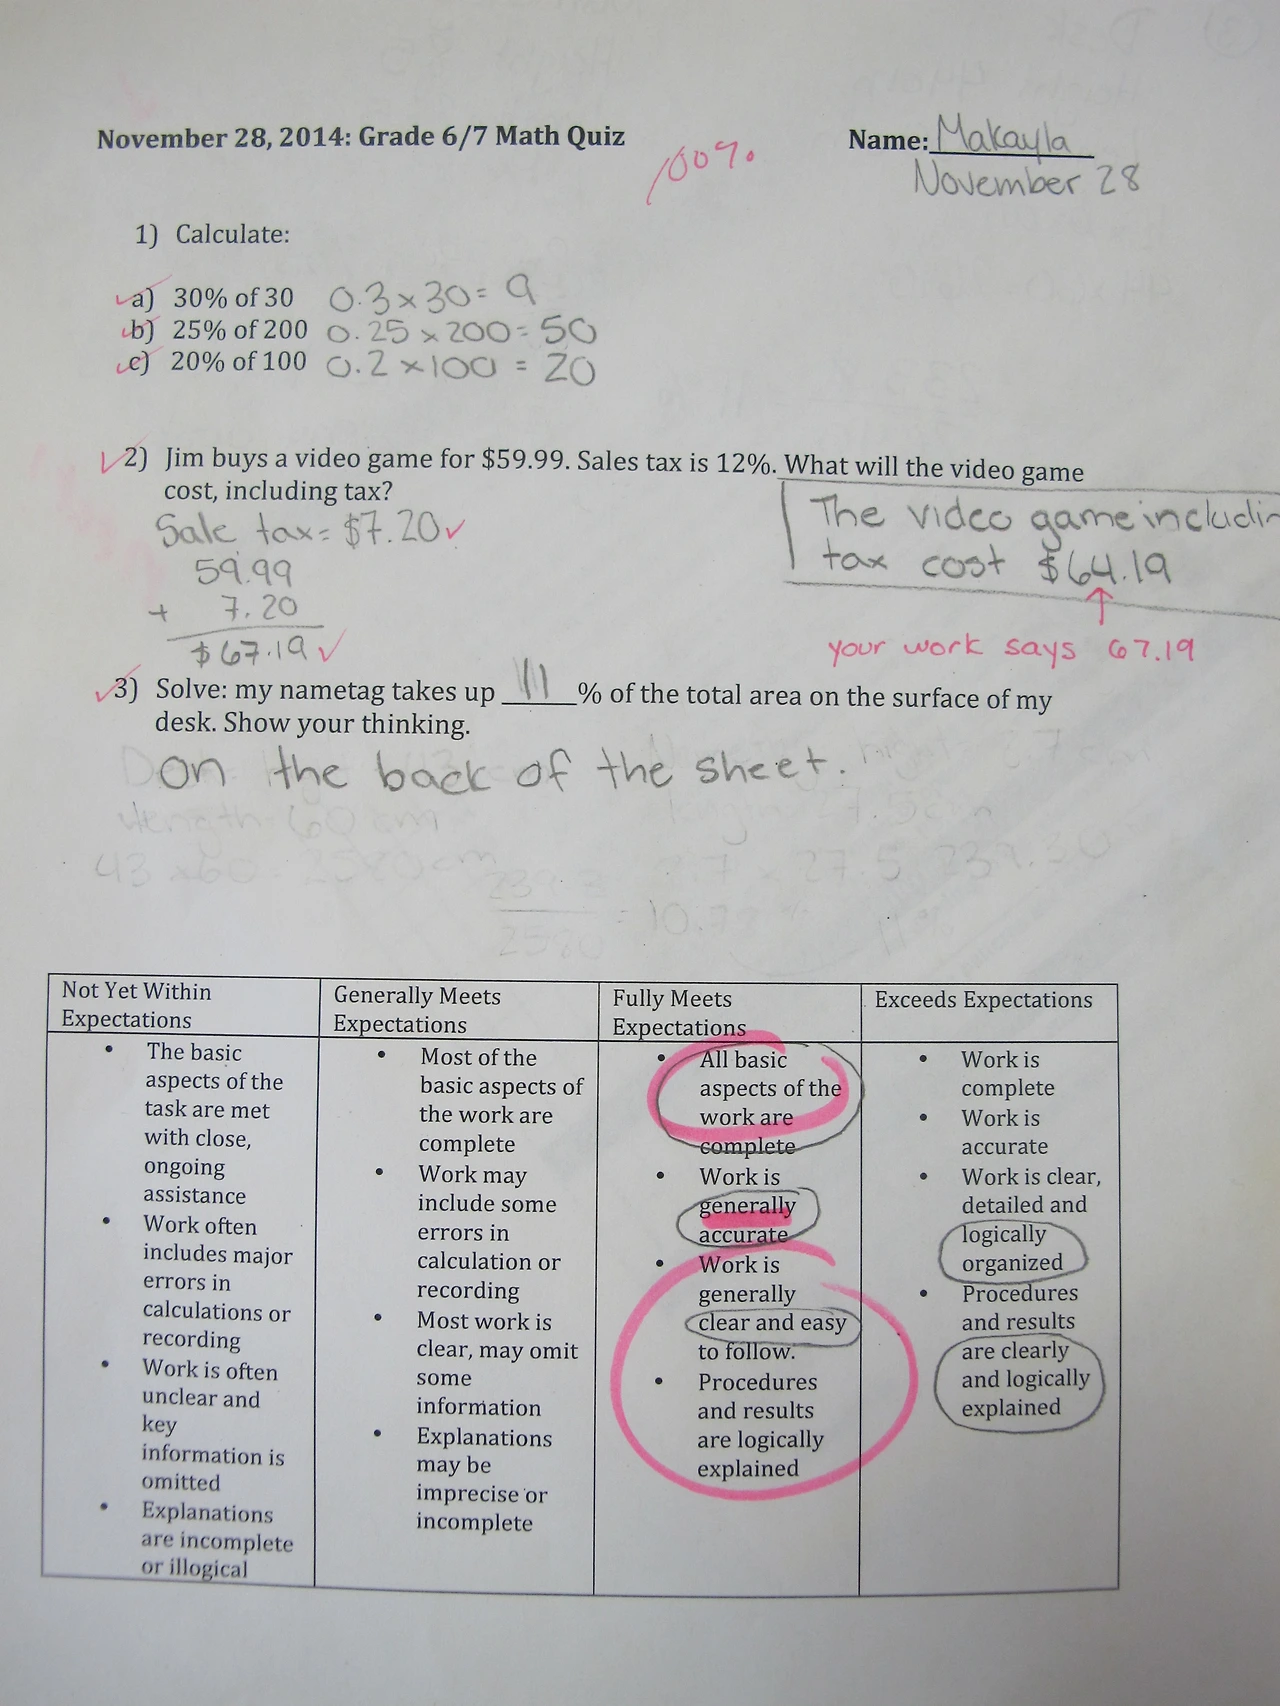 November 28, 2014: Grade 6/7 Math Quiz
100%
Name: Makayla
November 28
1) Calculate:
a) 30% of 30 0.3 x 30 = 9
b) 25% of 200 0.25 x 200 = 50
c) 20% of 100 0.2 x 100 = 20
2) Jim buys a video game for $59.99. Sales tax is 12%. What will the video game
cost, including tax?
Sale tax = $7.20
59.99
+ 7.20
$67.19
The video game includin
tax cost $64.19
your work says 67.19
3) Solve: my nametag takes up 11 % of the total area on the surface of my
desk. Show your thinking.
on the back of the sheet.
Not Yet Within
Expectations
The basic
aspects of the
task are met
with close,
ongoing
assistance
Work often
includes major
errors in
calculations or
recording
Work is often
unclear and
key
information is
omitted
Explanations
are incomplete
or illogical
Generally Meets
Expectations
Most of the
basic aspects of
the work are
complete
Work may
include some
errors in
calculation or
recording
Most work is
clear, may omit
some
information
Explanations
may be
imprecise or
incomplete
Fully Meets
Expectations
All basic
aspects of the
work are
complete
Work is
generally
accurate
Work is
generally
clear and easy
to follow.
Procedures
and results
are logically
explained
Exceeds Expectations
Work is
complete
Work is
accurate
Work is clear,
detailed and
logically
organized
Procedures
and results
are clearly
and logically
explained